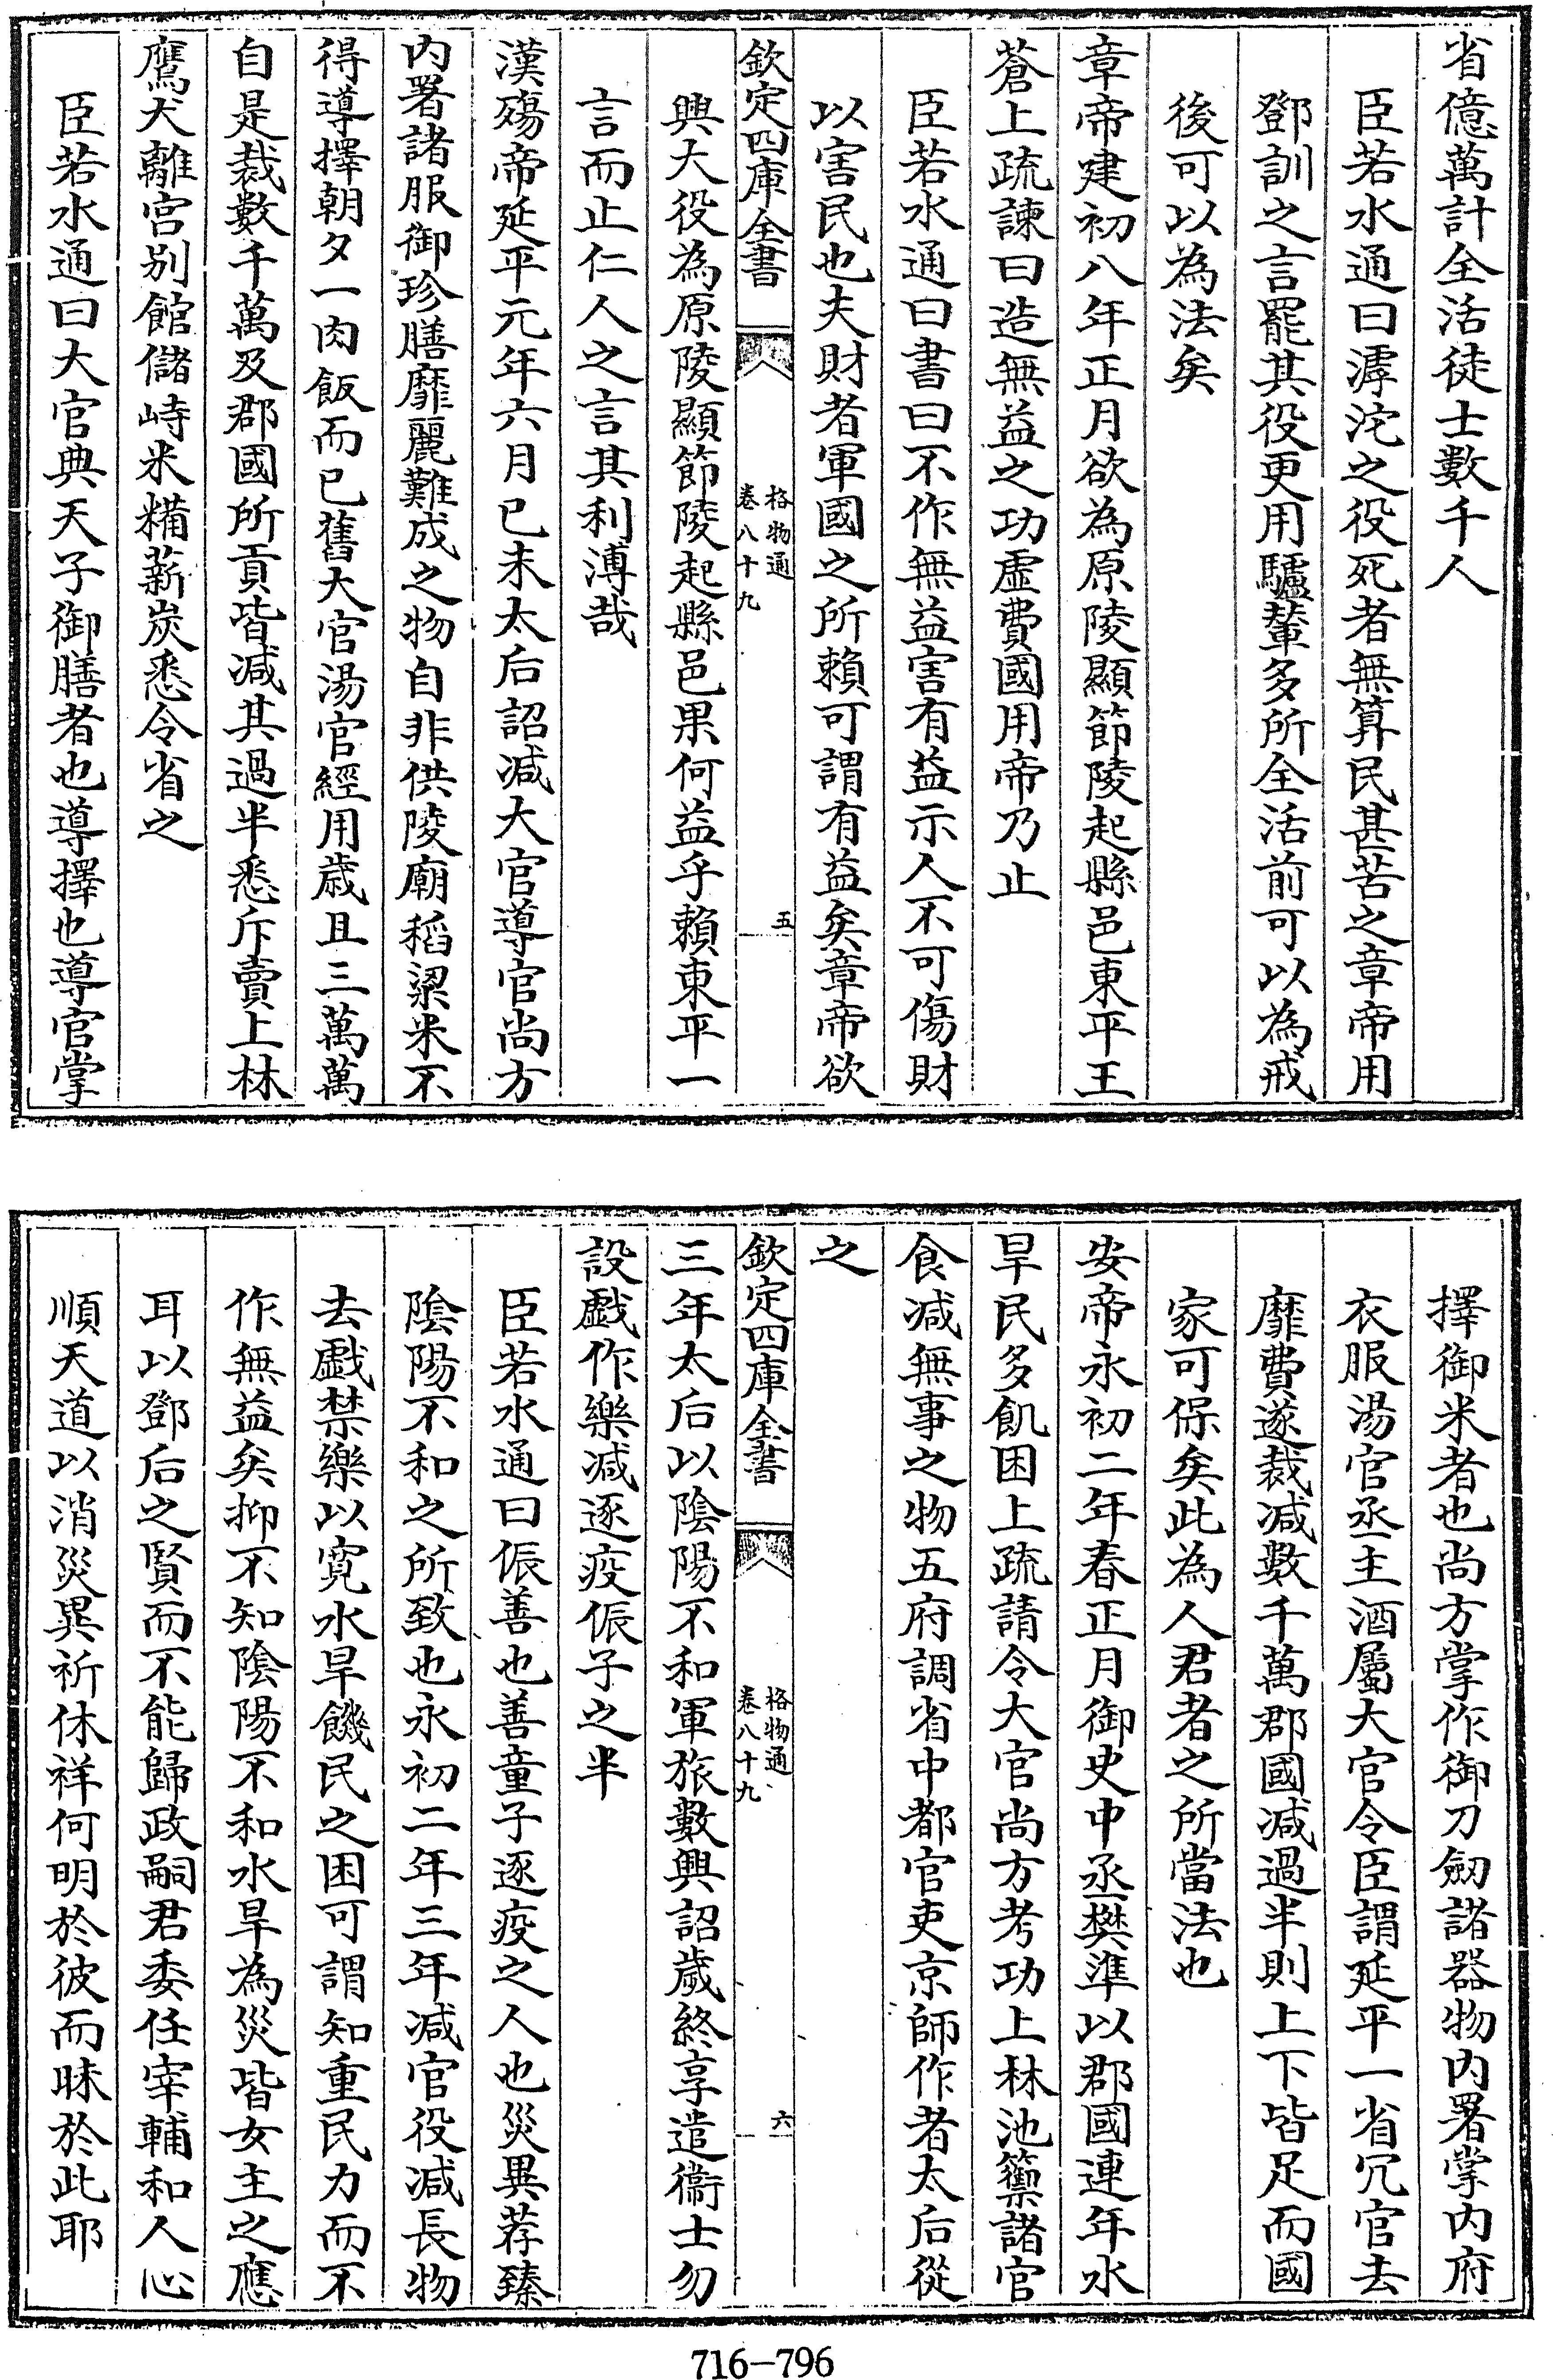 省億萬計全活徒士數千人
臣若水通曰滹沱之役死者無算民甚苦之章帝用
鄧訓之言罷其役更用驢輦多所全活前可以為戒
後可以為法矣
章帝建初八年正月欲為原陵顯節陵起縣邑東平王
蒼上疏諫曰造無益之功虛費國用帝乃止
臣若水通曰書曰不作無益害有益示人不可傷財
以害民也夫財者軍國之所賴可謂有益矣章帝欲
欽定四庫全書
格物通
卷八十九
五
興大役為原陵顯節陵起縣邑果何益乎賴東平一
言而止仁人之言其利溥哉
漢殤帝延平元年六月已未太后詔减大官導官尚方
内署諸服御珍膳靡麗難成之物自非供陵廟稻粱米不
得導擇朝夕一肉飯而已舊大官湯官經用歲且三萬萬
自是裁數千萬及郡國所貢皆减其過半悉斥賣上林
鷹犬離宫别館儲峙米糒薪炭悉令省之
臣若水通曰大官典天子御膳者也導擇也導官掌
擇御米者也尚方掌作御刀劒諸器物内署掌内府
衣服湯官丞主酒屬大官令臣謂延平一省冗官去
靡費遂裁减數千萬郡國减過半則上下皆足而國
家可保矣此為人君者之所當法也
安帝永初二年春正月御史中丞樊準以郡國連年水
旱民多飢困上疏請令大官尚方考功上林池籞諸官
食减無事之物五府調省中都官吏京師作者太后從
之
欽定四庫全書
格物通
卷八十九
六
三年太后以陰陽不和軍旅數興詔歲終享遣衞士勿
設戲作樂减逐疫侲子之半
臣若水通曰侲善也善童子逐疫之人也災異荐臻
陰陽不和之所致也永初二年三年减官役减長物
去戲禁樂以寛水旱饑民之困可謂知重民力而不
作無益矣抑不知陰陽不和水旱為災皆女主之應
耳以鄧后之賢而不能歸政嗣君委任宰輔和人心
順天道以消災異祈休祥何明於彼而昧於此耶
716-796